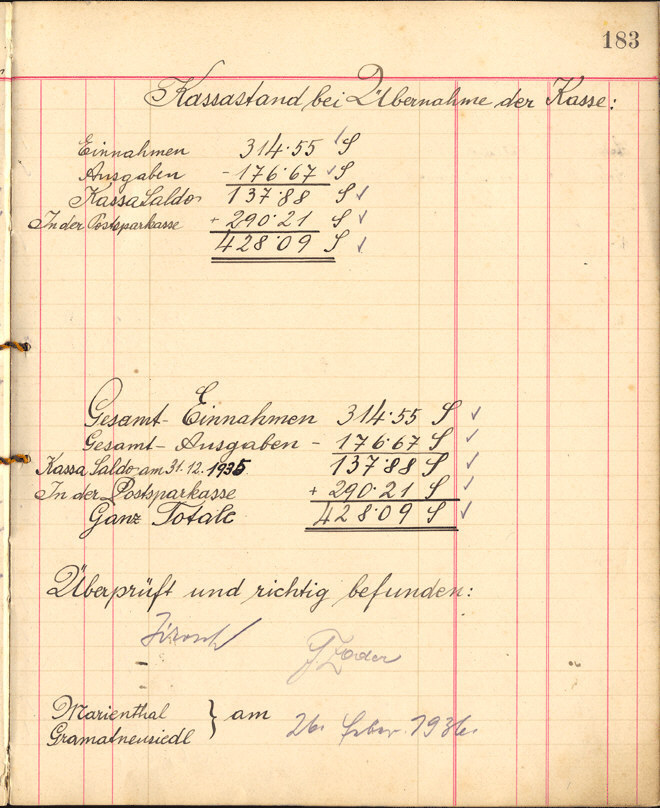 183
Kassastand bei Übernahme der Kasse:
Einnahmen 314·55 S
Ausgaben - 176·67 S
Kassa Saldo 137·88 S
In der Postsparkasse + 290·21 S
428·09 S
Gesamt-Einnahmen 314·55 S
Gesamt-Ausgaben - 176·67 S
Kassa Saldo am 31.12.1935 137·88 S
In der Postsparkasse + 290·21 S
Ganz Totale 428·09 S
Überprüft und richtig befunden:
Marienthal
Gramatneusiedl } am 26. 1936.